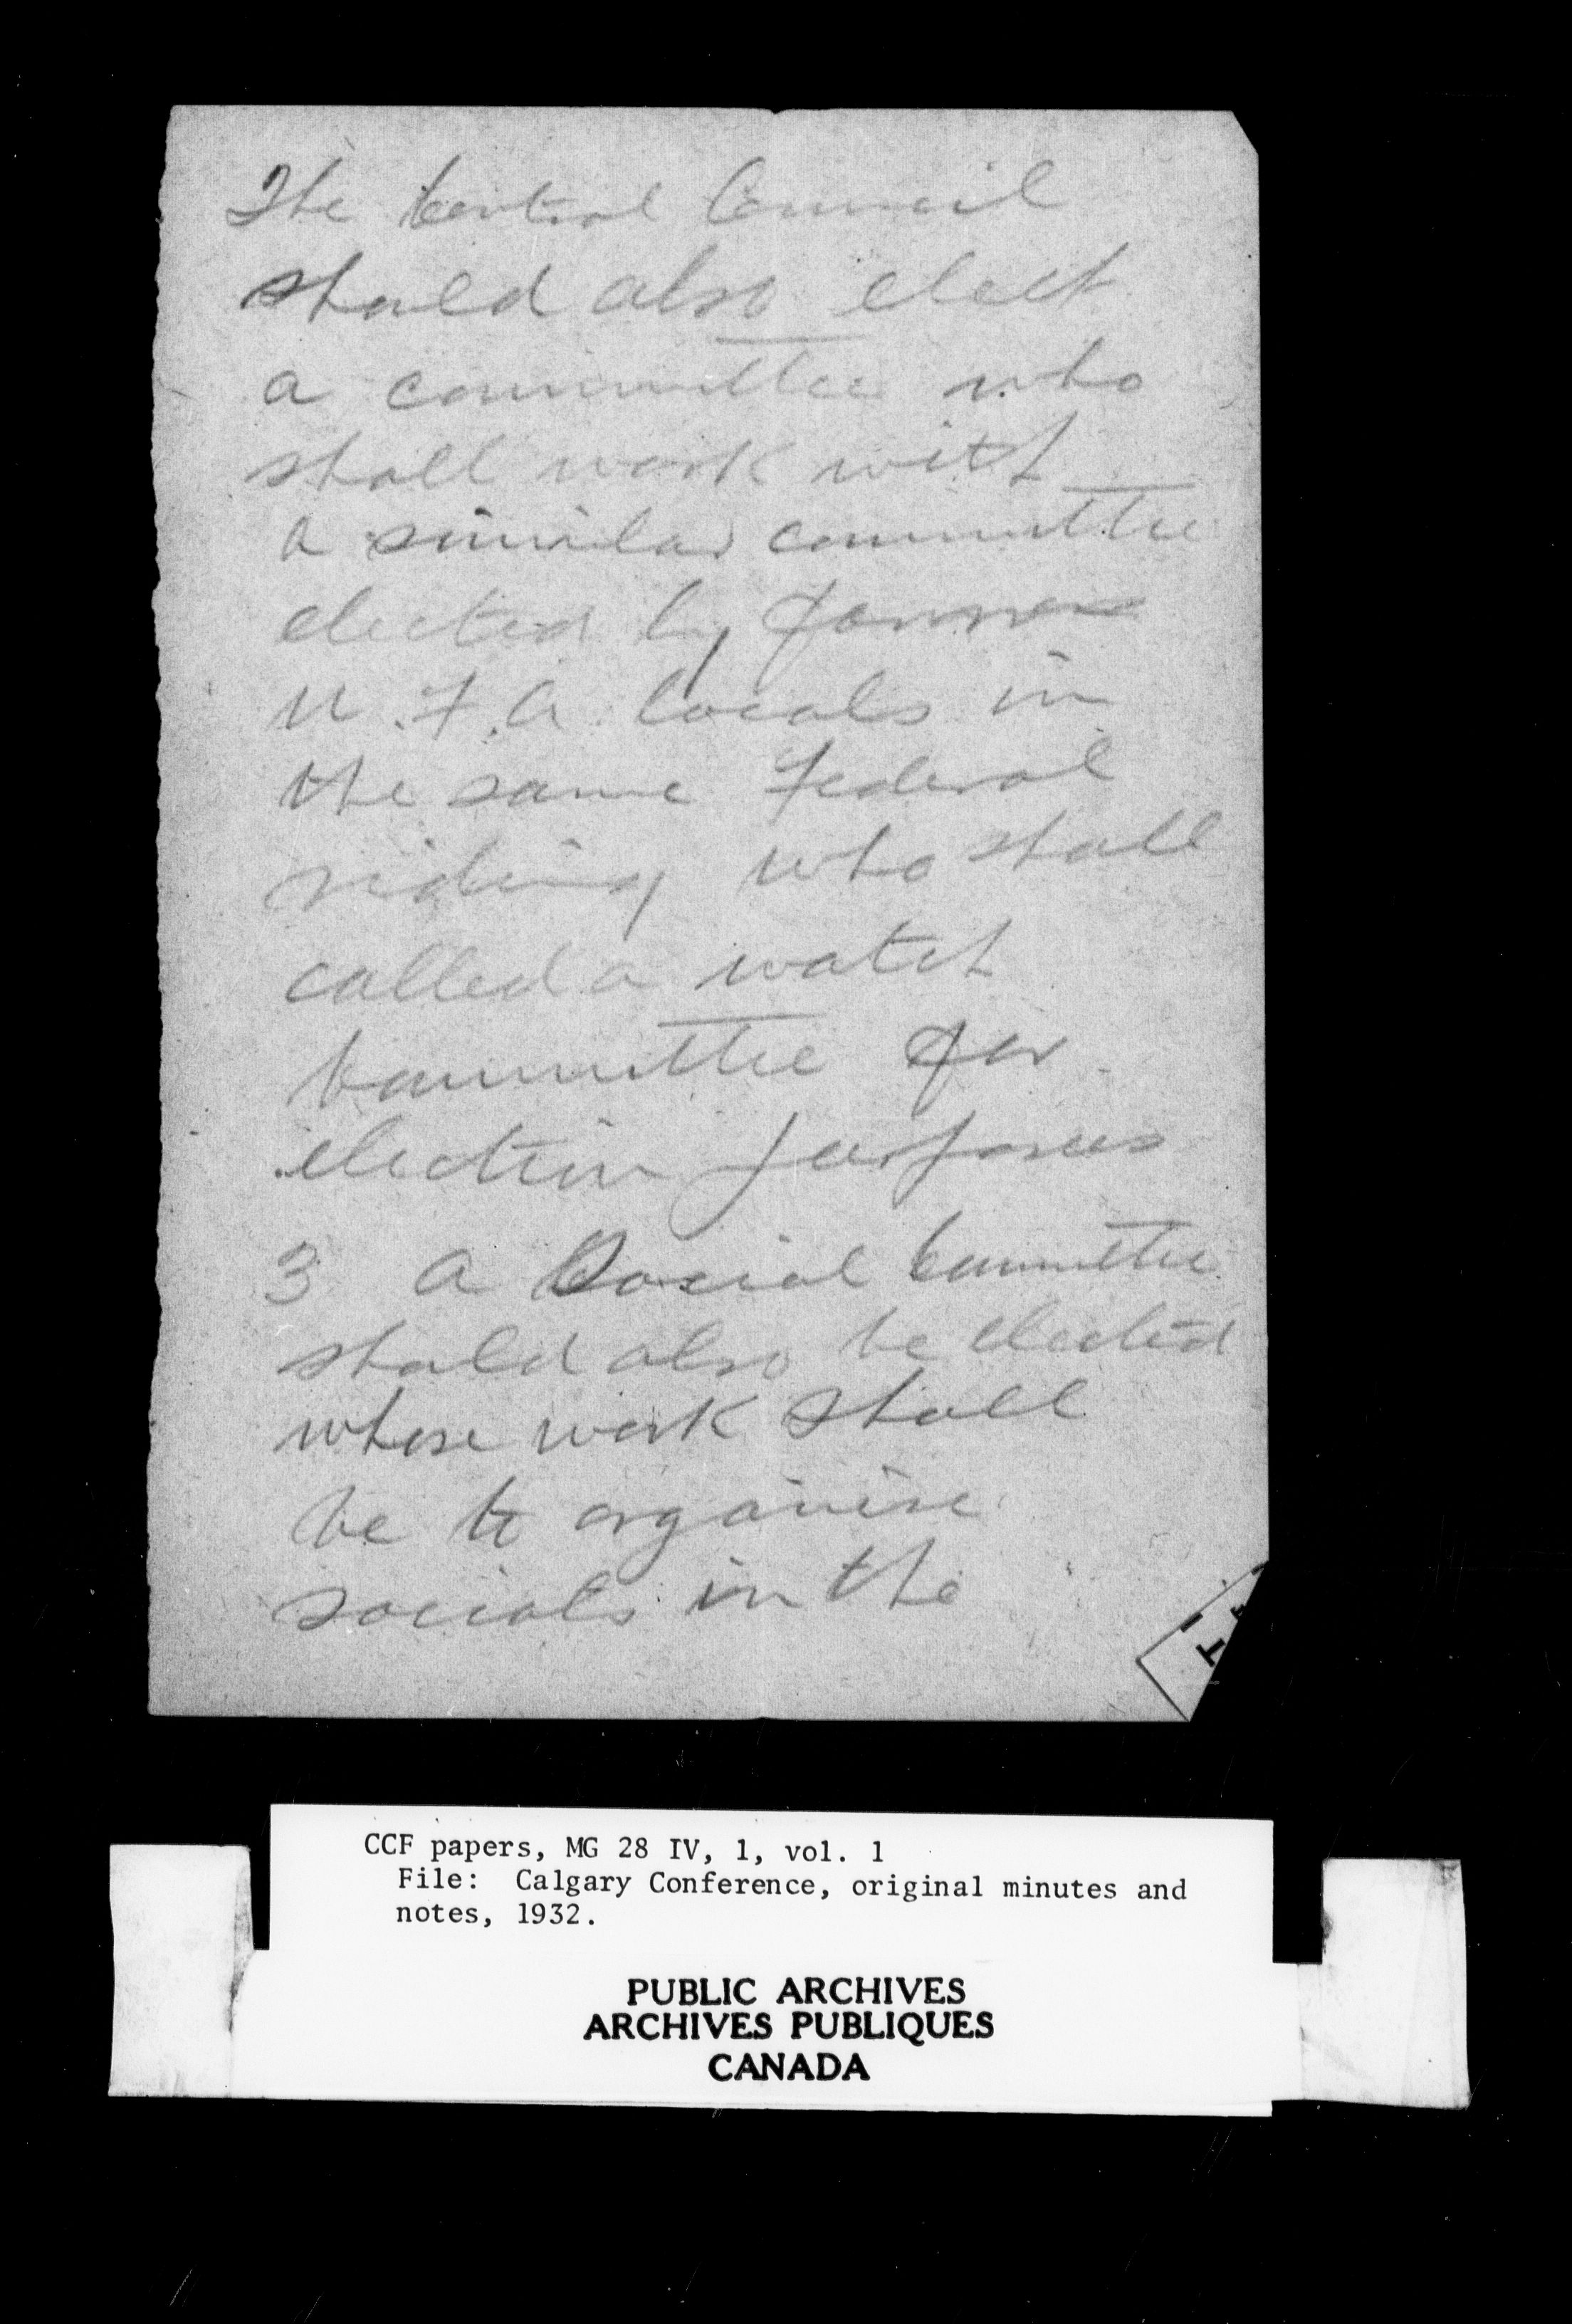 The Central Council
should also elect
a committee who
shall work with
a similar committee
elected by
U.F.A. locals in
the same Federal
riding who shall
called a watch
Committee for
election purposes
3 A Social Committee
should also be elected
whose work shall
be to organise
socials in the
CCF papers, MG 28 IV, 1, vol. 1
File: Calgary Conference, original minutes and
notes, 1932.
PUBLIC ARCHIVES
ARCHIVES PUBLIQUES
CANADA